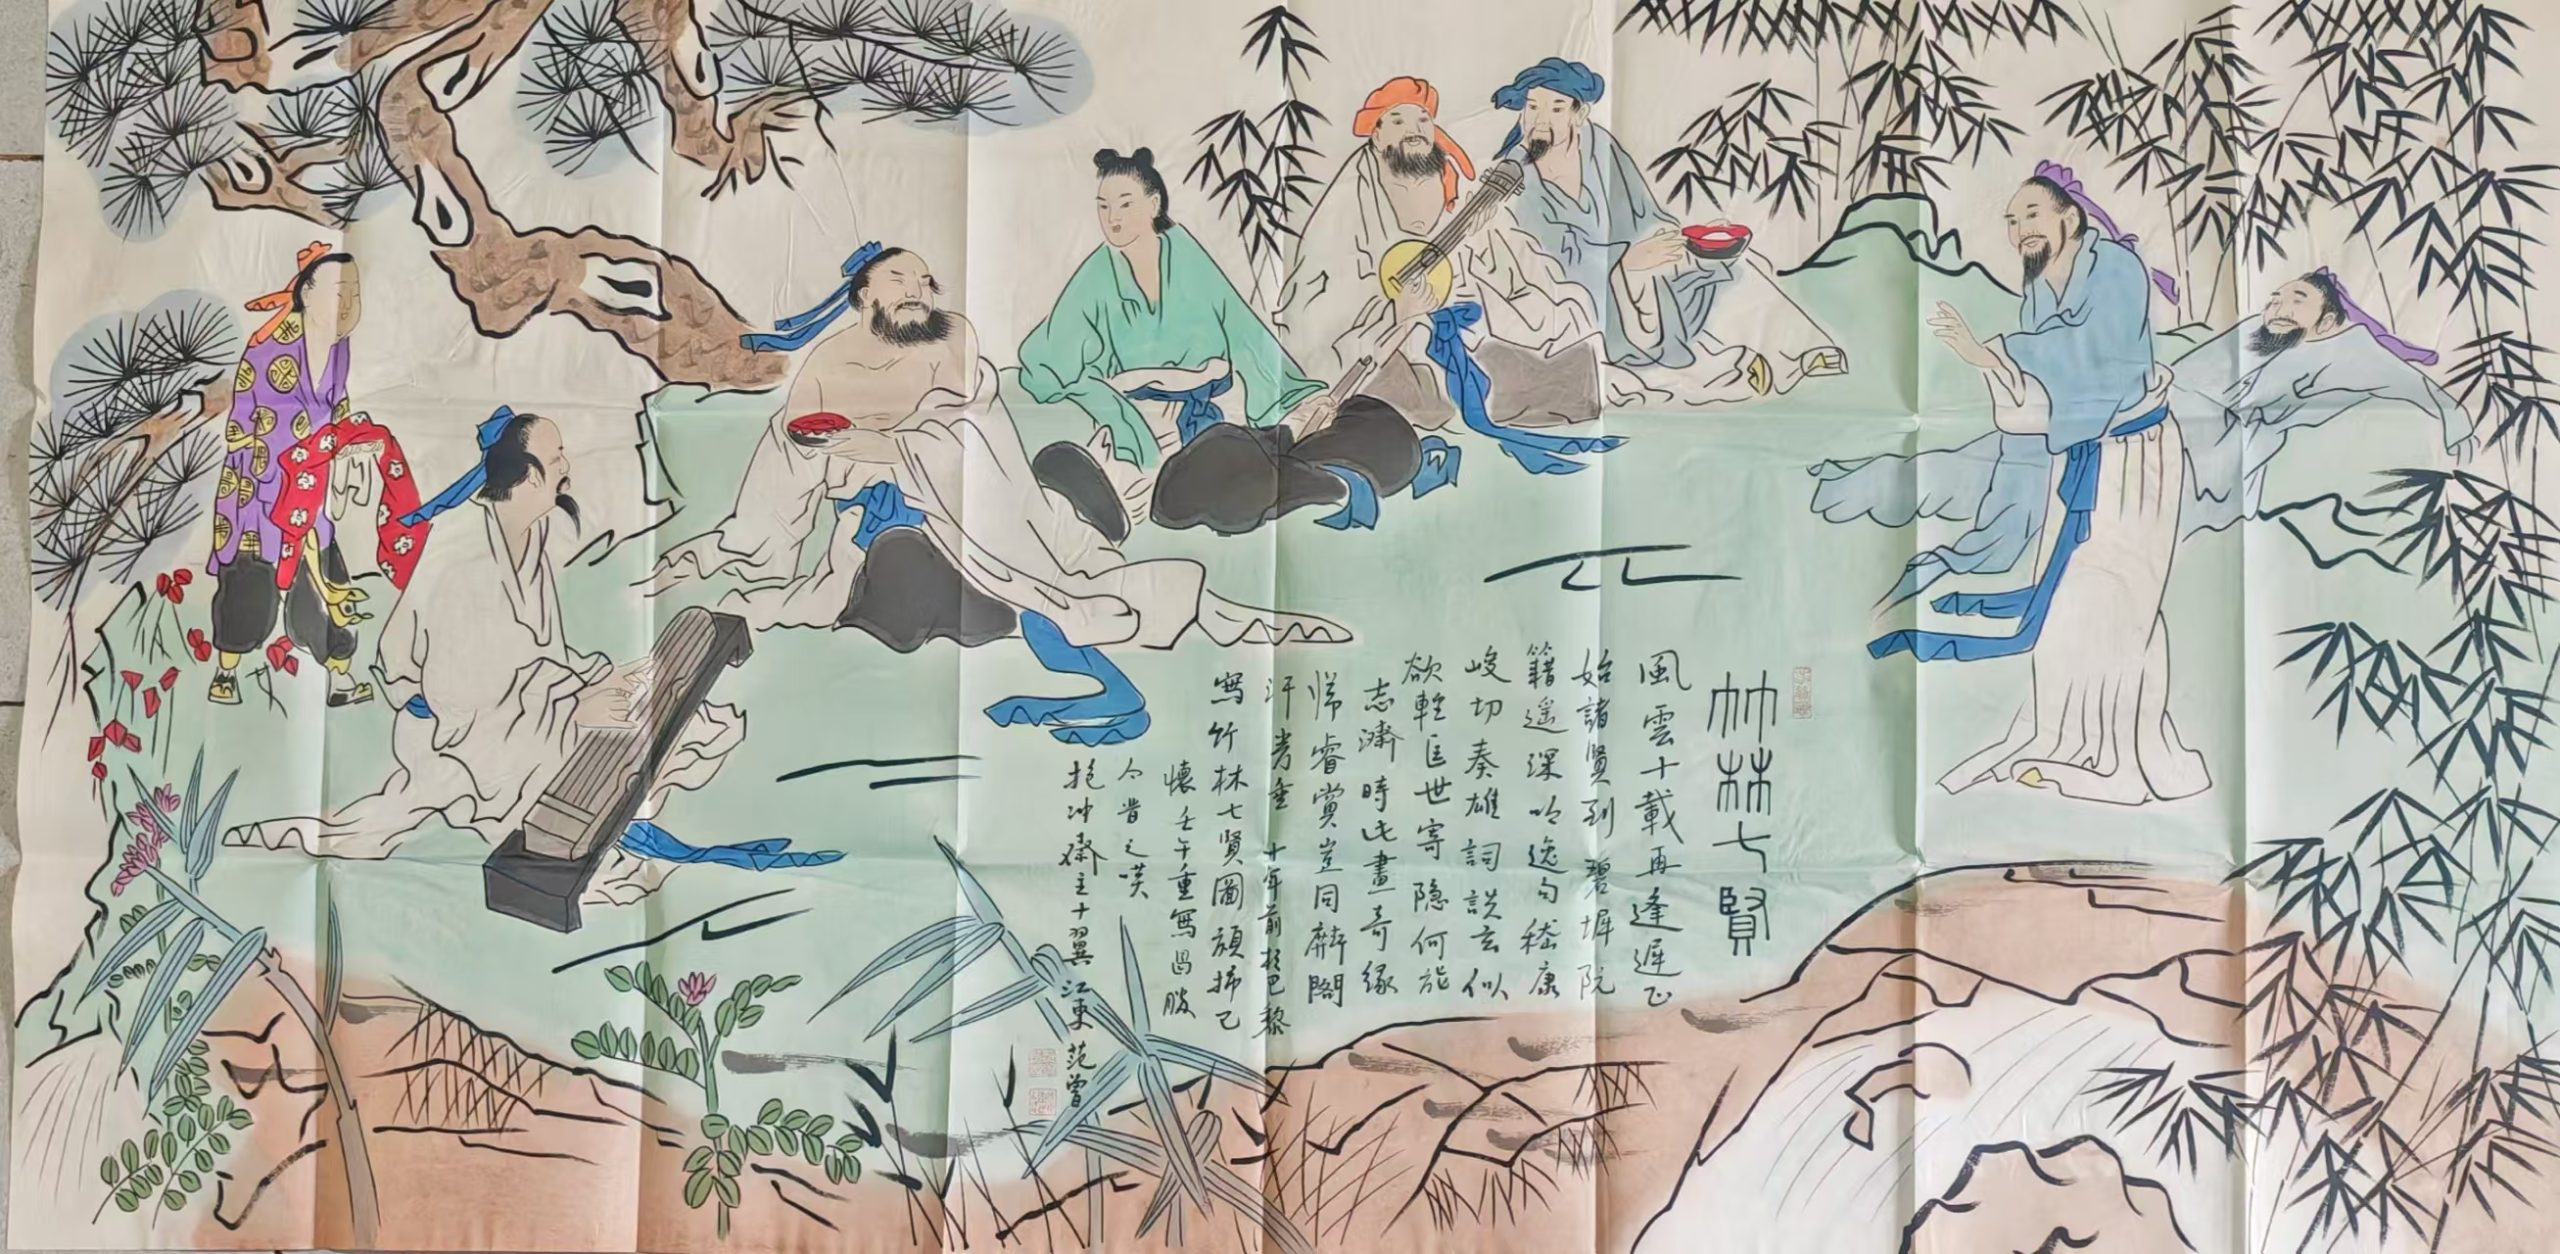 竹林七賢
風雲十載再逢遲正
始諸賢到碧墀阮
籍遥深吟逸句嵇康
峻切奏雄詞談玄似
欲輕匡世寄隐何能
志濟時此畫奇緣
歸睿賞豈同薜閣
汗青垂 十年前於巴黎
寫竹林七賢圖頗揣己
懷壬午重寫曷勝
今昔之嘆
抱冲齋主十翼江東范曾